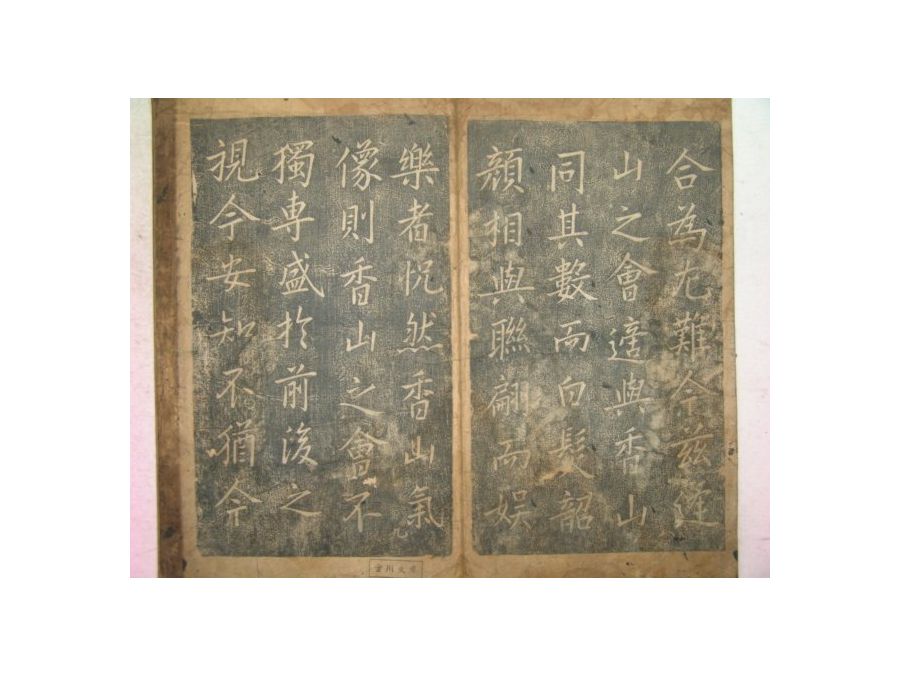 合為尤難今茲蓬
山之會適與香山
同其數而白髮韶
顏相與聯翩而娛
樂者怳然香山氣
像則香山之會不
獨專盛於前後之
視今安知不猶今
九